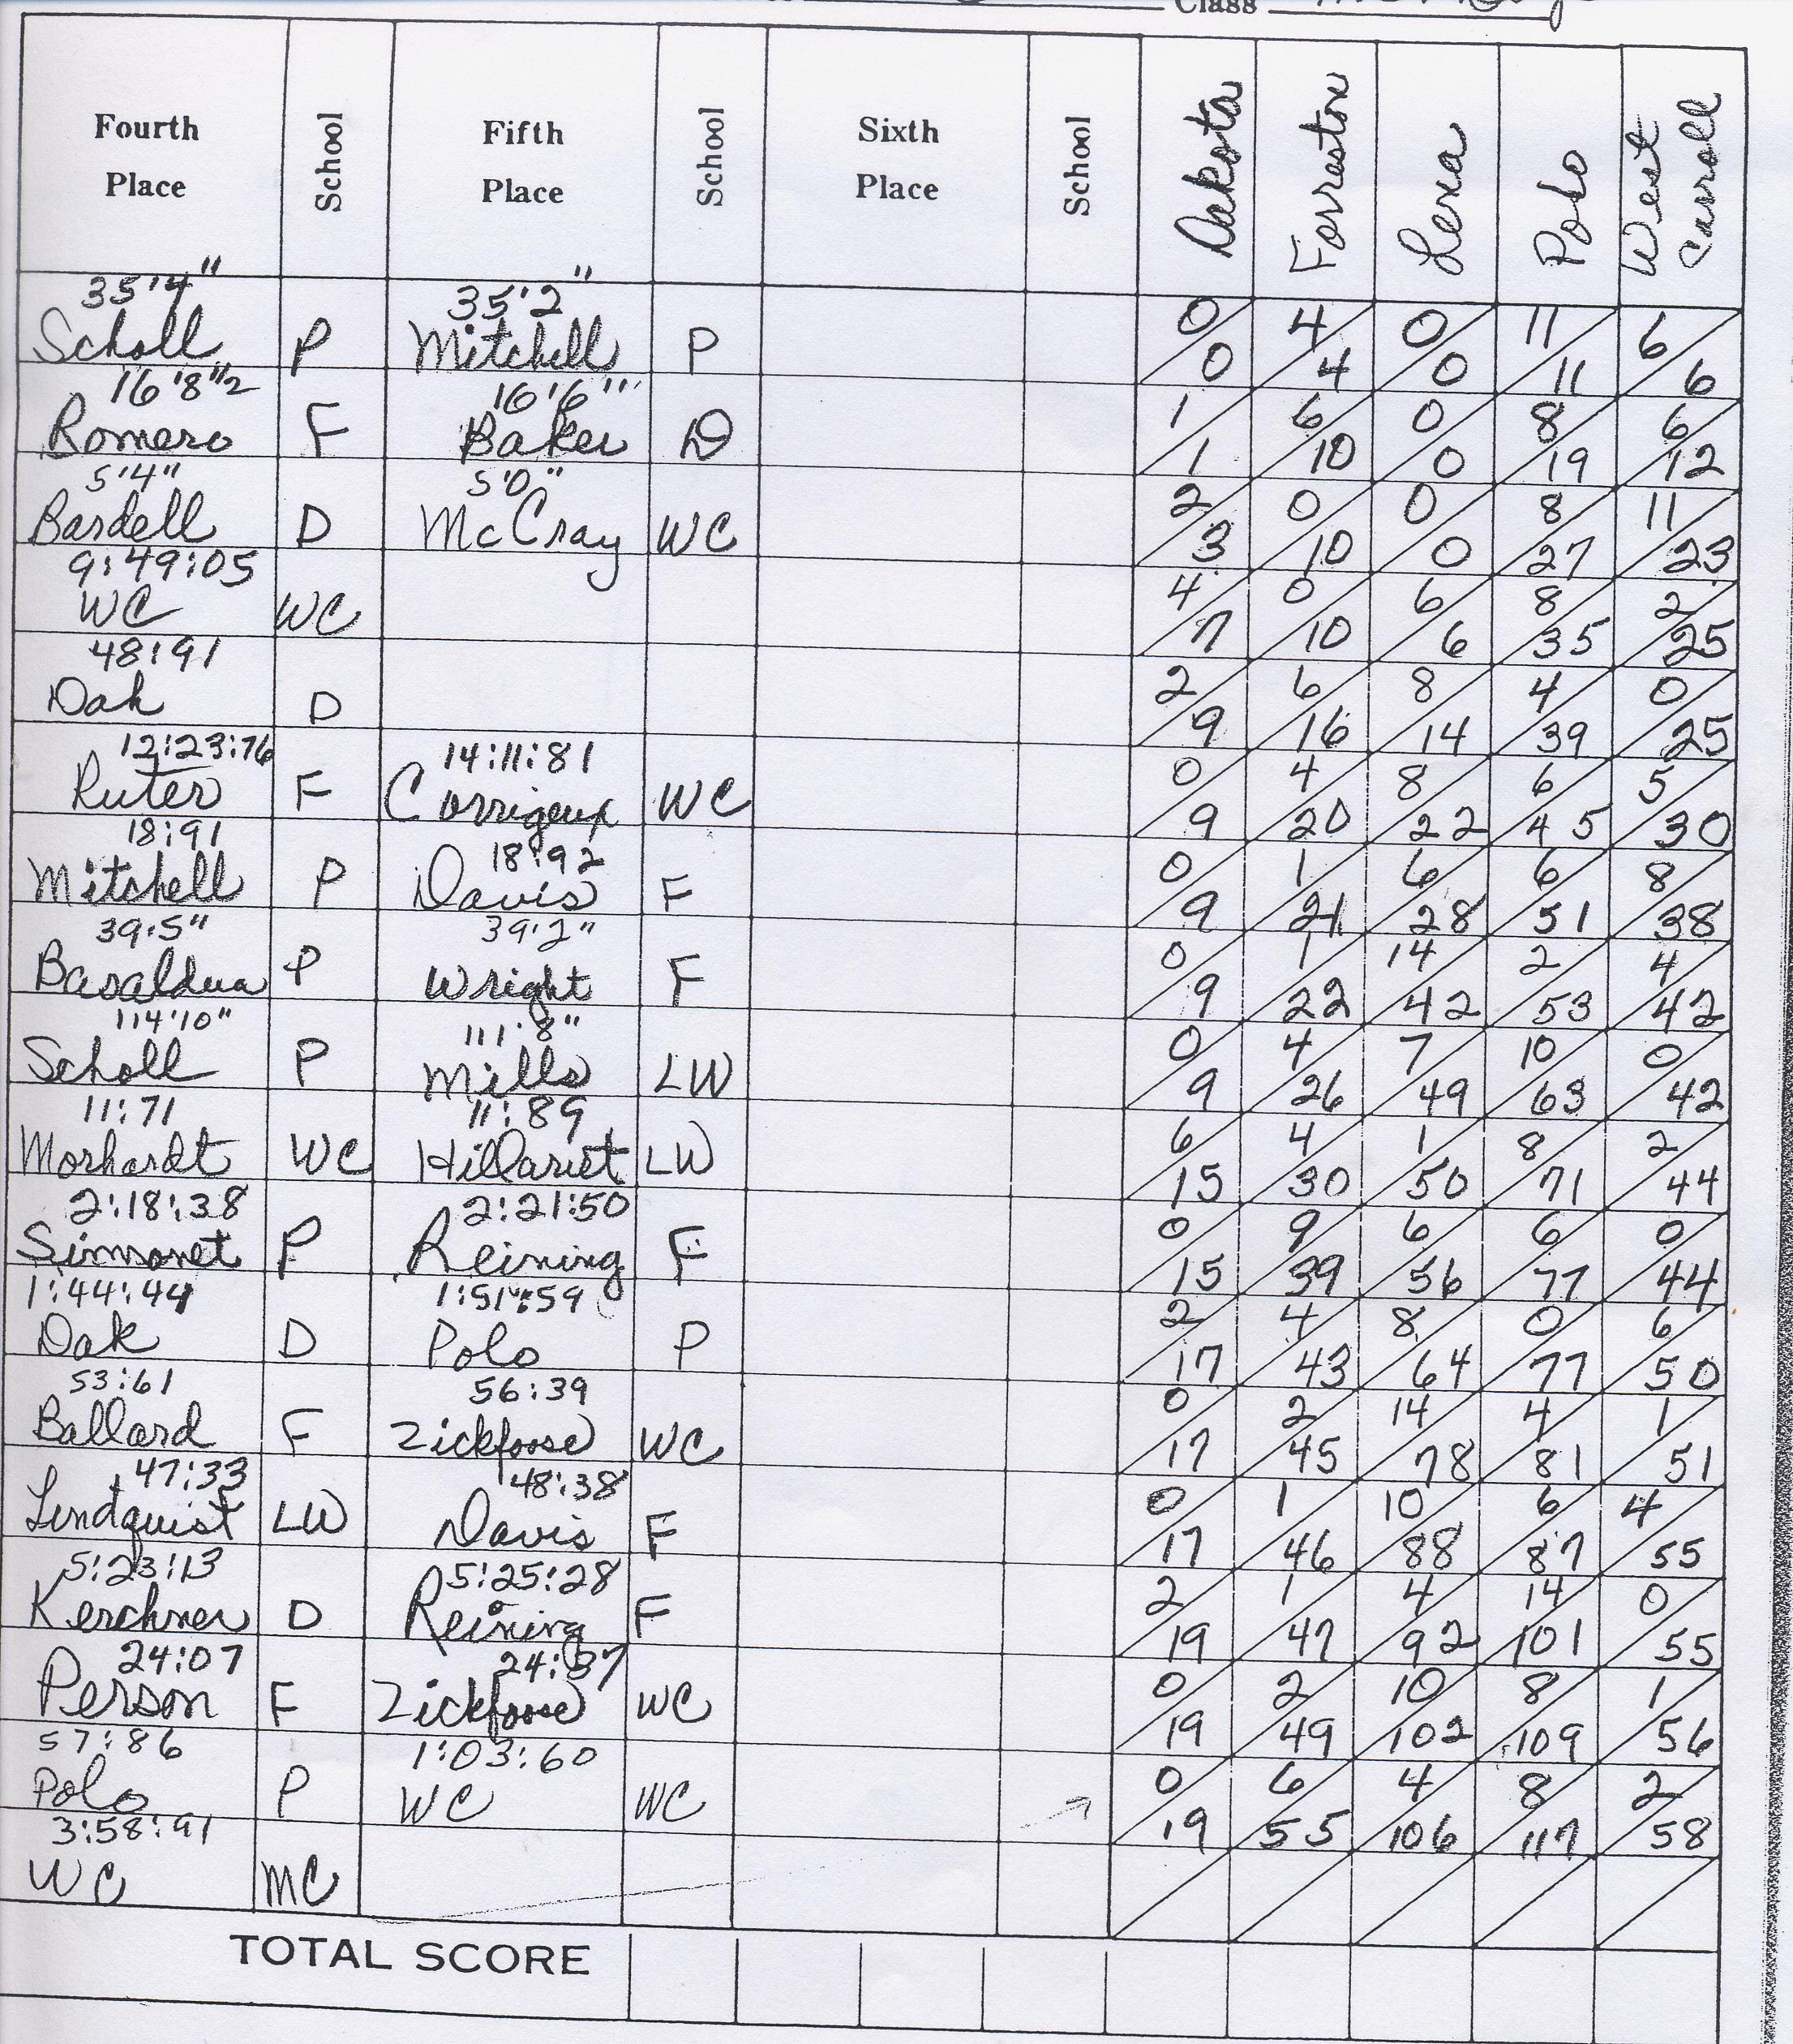 Class
Fourth Place School Fifth Place School Sixth Place School Dakota Forreston Lena Polo West Carroll
35'4" 35'2"
Scholl P Mitchell P 0 4 0 11 6
0 4 0 11 6
16'8"½ 16'6"
Romero F Baker D 1 6 0 8 6
1 10 0 19 12
5'4" 5'0"
Bardell D McCray WC 2 0 0 8 11
3 10 0 27 23
9:49:05
WC WC 4 0 6 8 2
7 10 6 35 25
48:91
Dak D 2 6 8 4 0
9 16 14 39 25
12:23:76 14:11:81
Ruter F WC 0 4 8 6 5
9 20 22 45 30
18:91 18:92
Mitchell P Davis F 0 1 6 6 8
9 21 28 51 38
39'5" 39'2"
Basaldua P Wright F 0 1 14 2 4
9 22 42 53 42
114'10" 111'8"
Scholl P Mills LW 0 4 7 10 0
9 26 49 63 42
11:71 11:89
Morhardt WC LW 6 4 1 8 2
15 30 50 71 44
2:18:38 2:21:50
Simmonet P Reining F 0 9 6 6 0
15 39 56 77 44
1:44:44 1:51:59
Dak D Polo P 2 4 8 0 6
17 43 64 77 50
53:61 56:39
Ballard F Zickfoose WC 0 2 14 4 1
17 45 78 81 51
47:33 48:38
Lindquist LW Davis F 0 1 10 6 4
17 46 88 87 55
5:23:13 5:25:28
Kerchner D Reining F 2 1 4 14 0
19 47 92 101 55
24:07 24:37
Person F Zickfoose WC 0 2 10 8 1
19 49 102 109 56
57:86 1:03:60
Polo P WC WC 0 6 4 8 2
19 55 106 117 58
3:58:91
WC MC
TOTAL SCORE